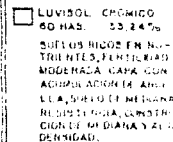 LUVISOL CROMICO
60 HAS. 33,24%
SUELOS RICOS EN NU-
TRIENTES, FERTILIDAD
MODERADA CAPA CON
ACUMULACION DE ARCI-
LLA, SUELO DE MEDIANA
RESISTENCIA, CONSTRUC-
CION DE MEDIANA Y ALTA
DENSIDAD.